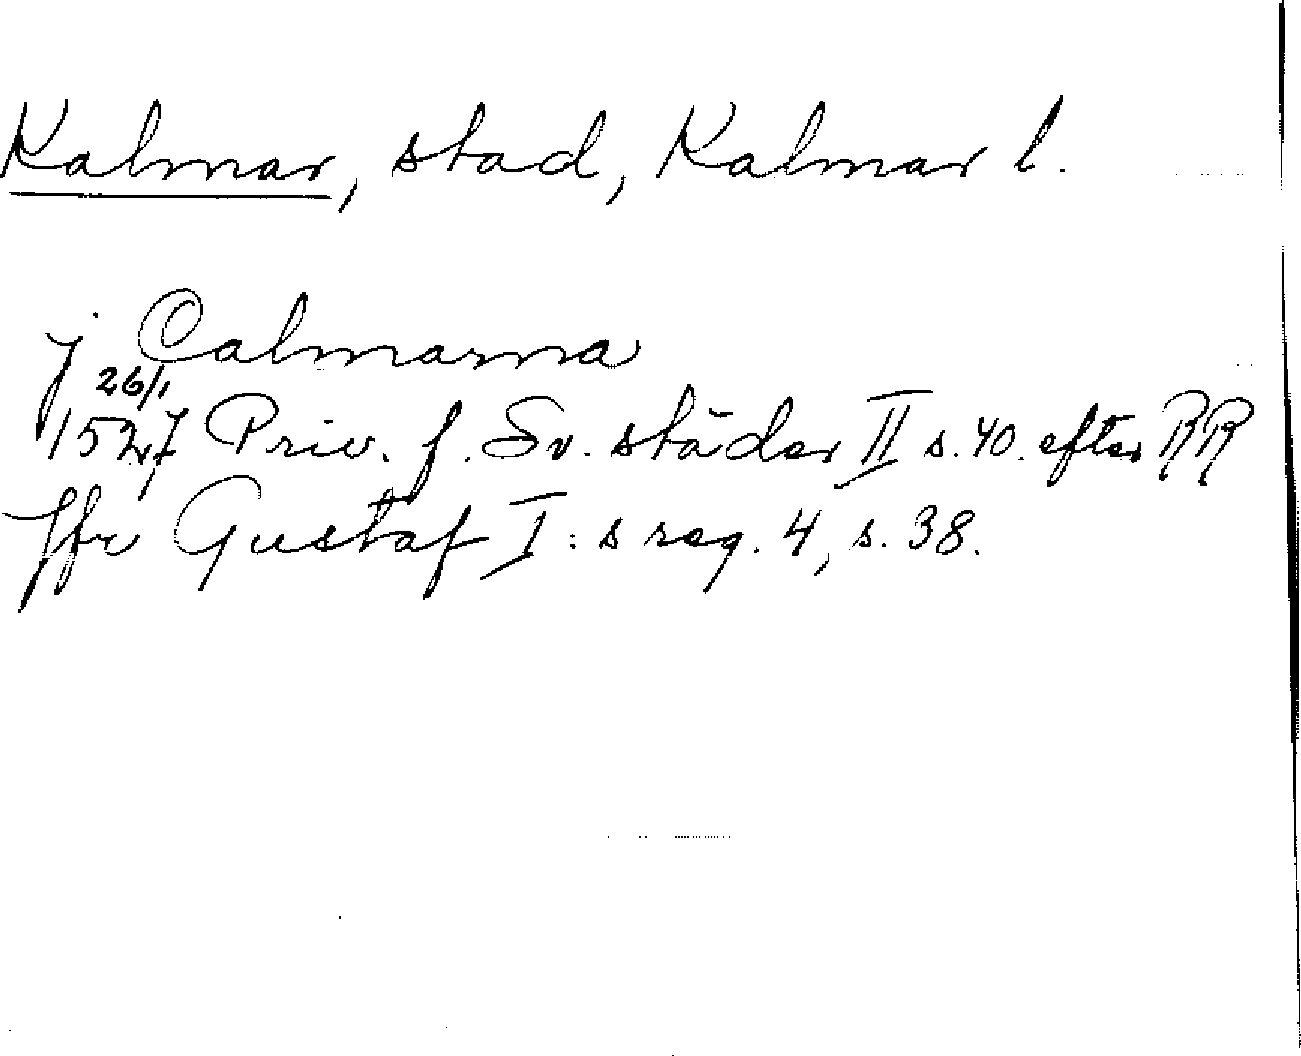 Kalmar, stad, Kalmar l.
j Calmarna
26/1
1527 Priv. f. Sv. städer II s. 40. efter RR
Jfr Gustaf I:s reg. 4, s. 38.